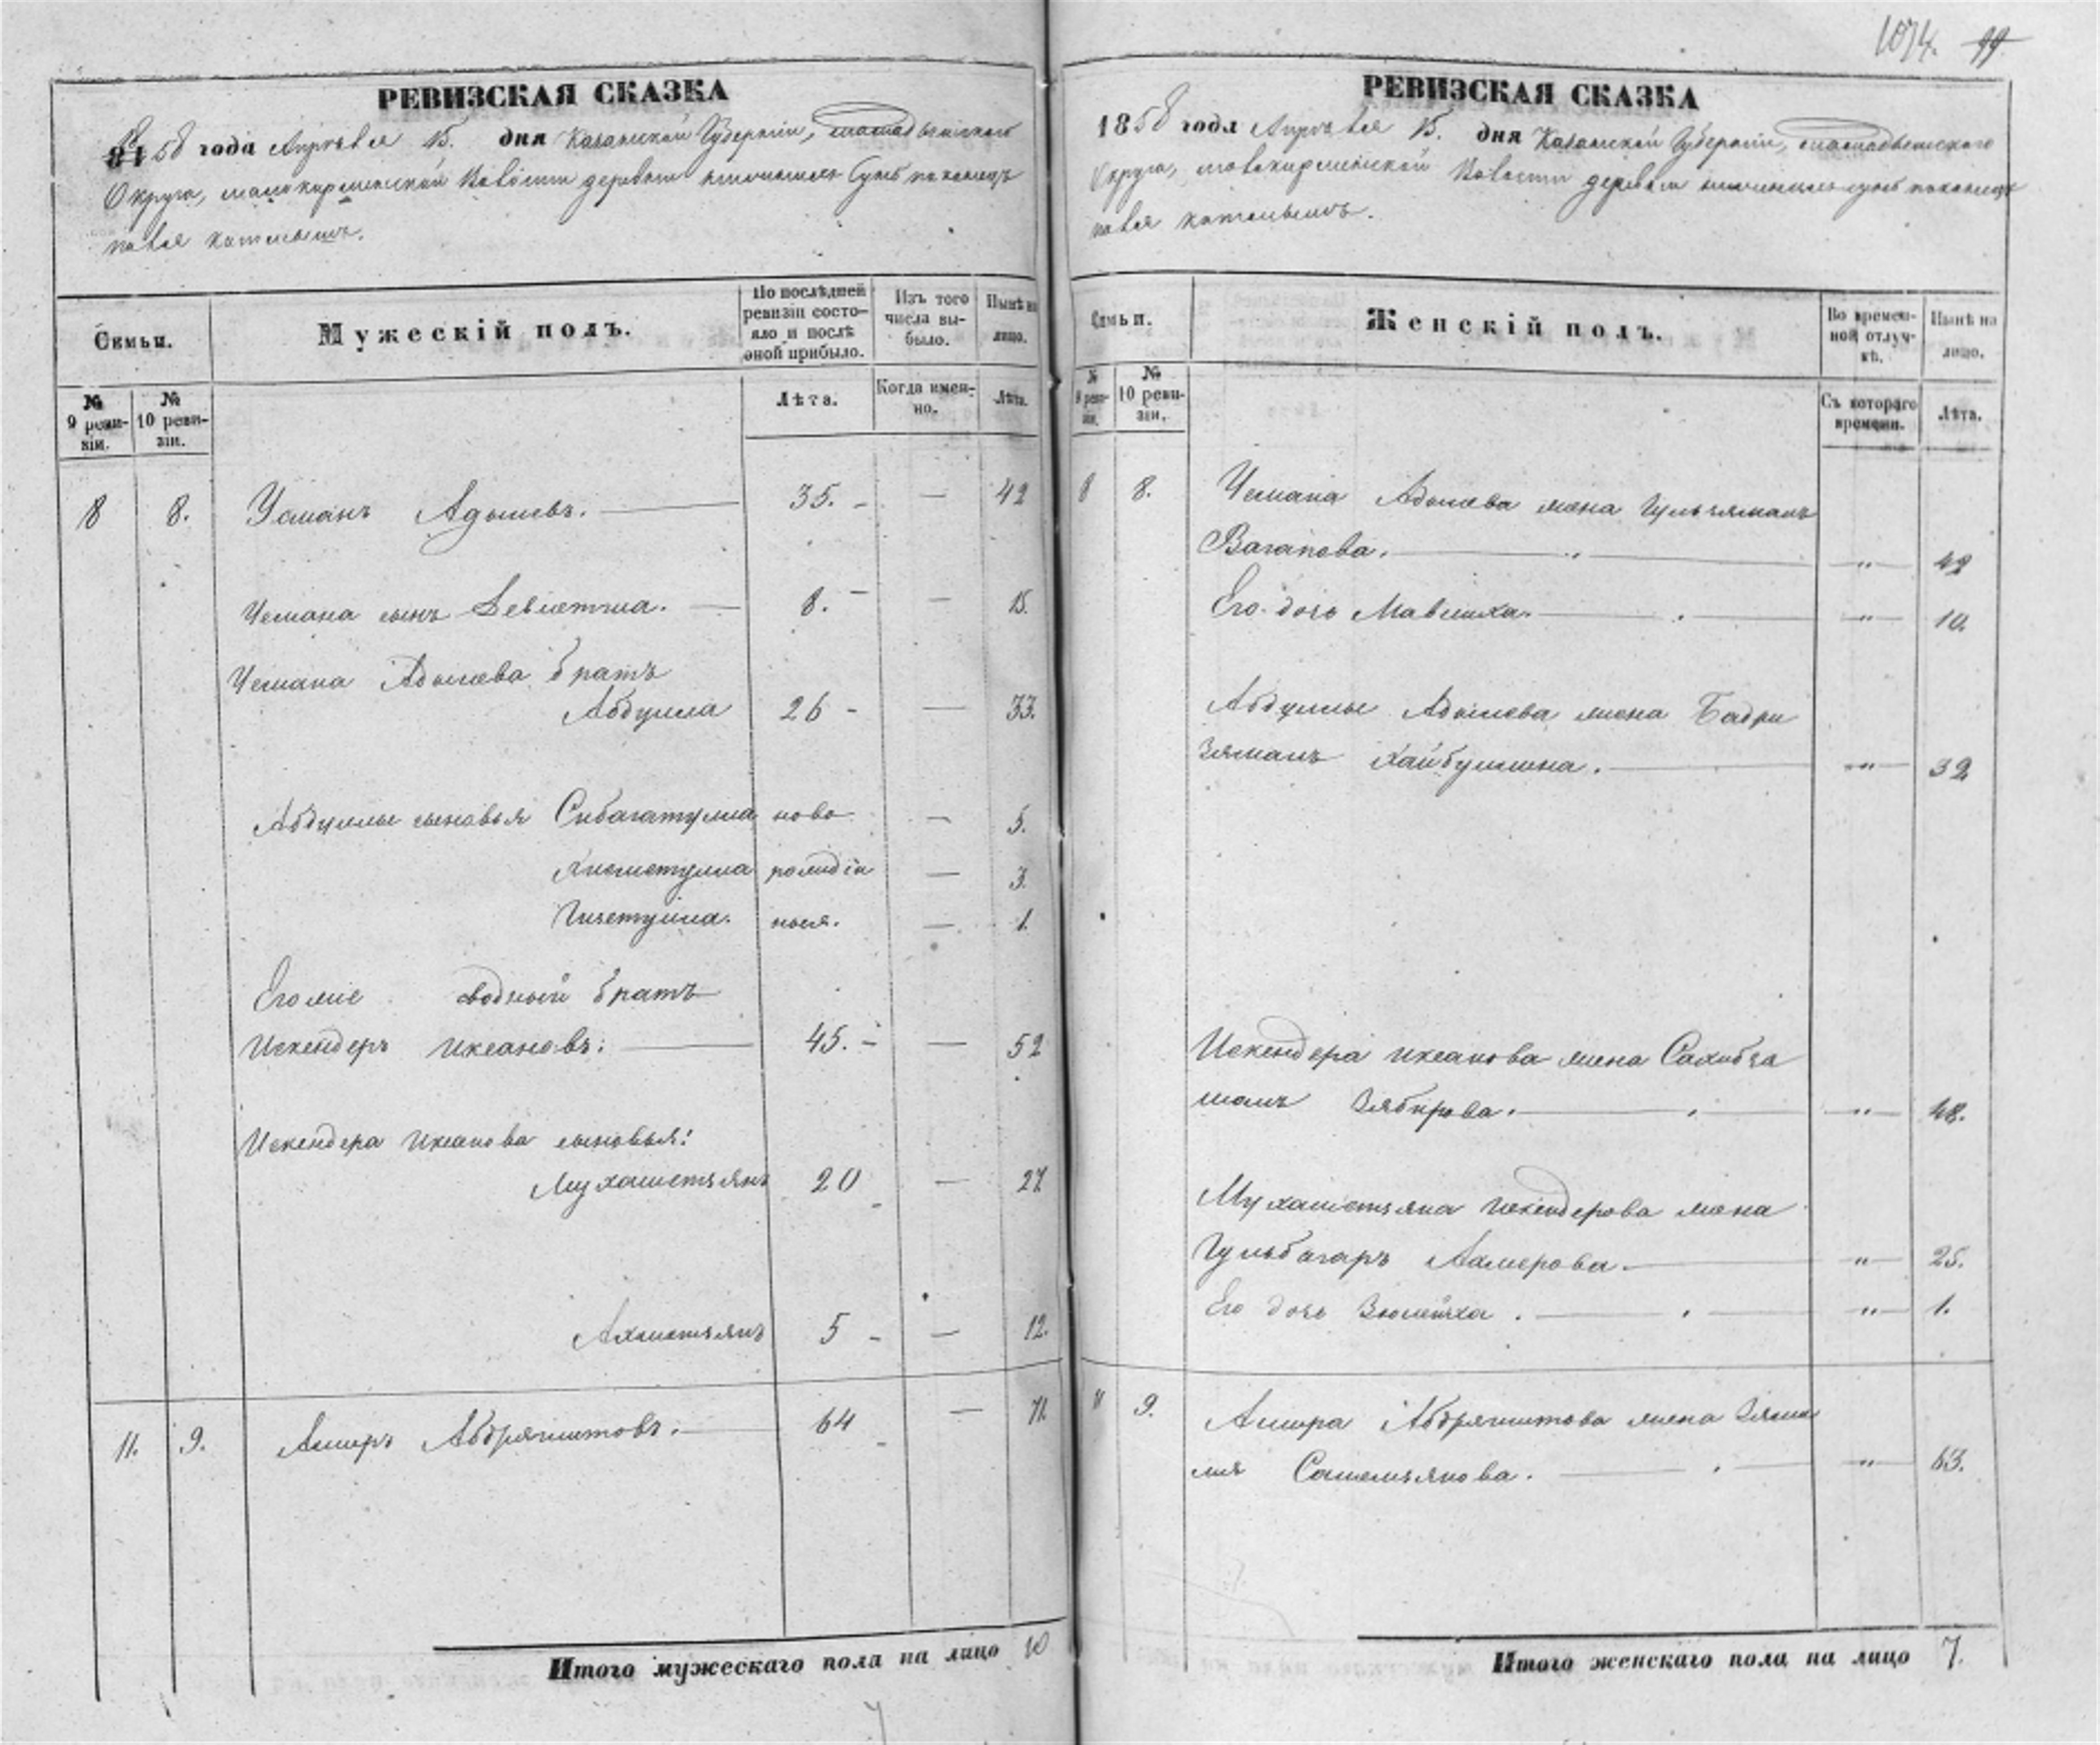 1074. 99
РЕВИЗСКАЯ СКАЗКА
1858 года Апрѣля 15. дня Казанской Губерніи,
Округа, Волости деревни
Семьи.
Мужескій полъ.
По послѣдней ревизіи состояло и послѣ оной прибыло.
Изъ того числа выбыло.
Нынѣ на лицо.
№ 9 ревизіи.
№ 10 ревизіи.
Лѣта.
Когда именно.
Лѣта.
8 8. Усманъ Адышевъ. 35. — 42
Усмана сынъ Девлетша. 8. — 15.
Усмана Адышева братъ
Абдулла 26 — 33.
Абдуллы сыновья Сибагатулла ново — 5.
Хисметулла рожденія — 3.
Гизетулла. ноля. — 1.
Его же сводный братъ
Искендеръ Ихсановъ: 45. — 52
Искендера Ихсанова сыновья:
Мухаметзянъ 20 — 27.
Ахметзянъ 5 — 12.
11. 9. Амиръ Абдряшитовъ. 64 — 71.
Итого мужескаго пола на лицо 10
РЕВИЗСКАЯ СКАЗКА
1858 года Апрѣля 15. дня Казанской Губерніи,
Округа, Волости деревни
Семьи.
Женскій полъ.
Во временной отлучкѣ.
Нынѣ на лицо.
№ 9 ревизіи.
№ 10 ревизіи.
Съ котораго времени.
Лѣта.
8 8. Усмана Адышева жена Гульзяманъ
Вагапова. — " — 42
Его дочь Мавлиха. — " — 10.
Абдуллы Адышева жена Бадри
Зяманъ Хайбуллина. — " — 32
Искендера Ихсанова жена Сахибза
манъ Зябирова. — " — 48.
Мухаметзяна Искендерова жена
Гульбагаръ Ахмерова. — " — 25.
Его дочь Зюлейха. — " — 1.
11 9. Амира Абдряшитова жена Зями
ля Сашемзянова. — " — 63.
Итого женскаго пола на лицо 7.